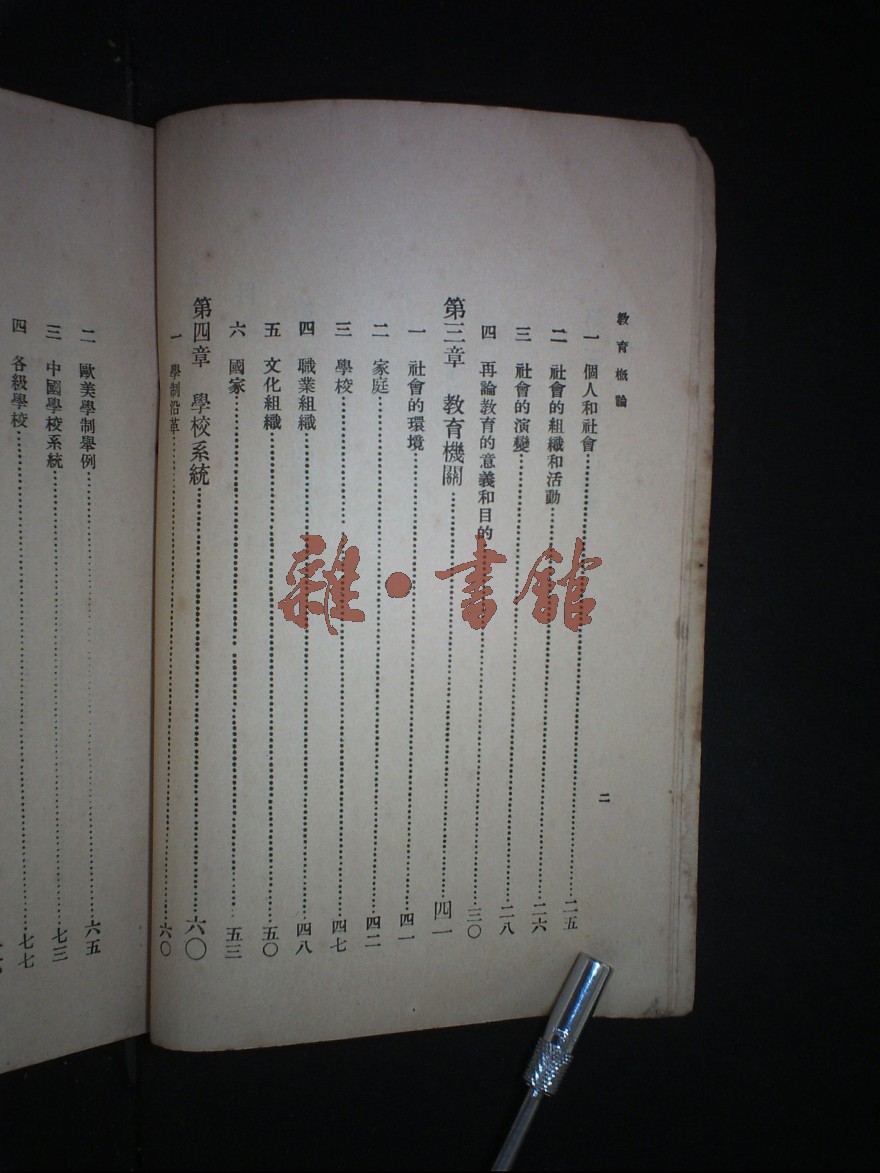 教育概論
二
一 個人和社會 二五
二 社會的組織和活動 二六
三 社會的演變 二八
四 再論教育的意義和目的 三〇
第三章 教育機關 四一
一 社會的環境 四一
二 家庭 四二
三 學校 四七
四 職業組織 四八
五 文化組織 五〇
六 國家 五三
第四章 學校系統 六〇
一 學制沿革 六〇
二 歐美學制舉例 六五
三 中國學校系統 七三
四 各級學校 七七
雜·書館